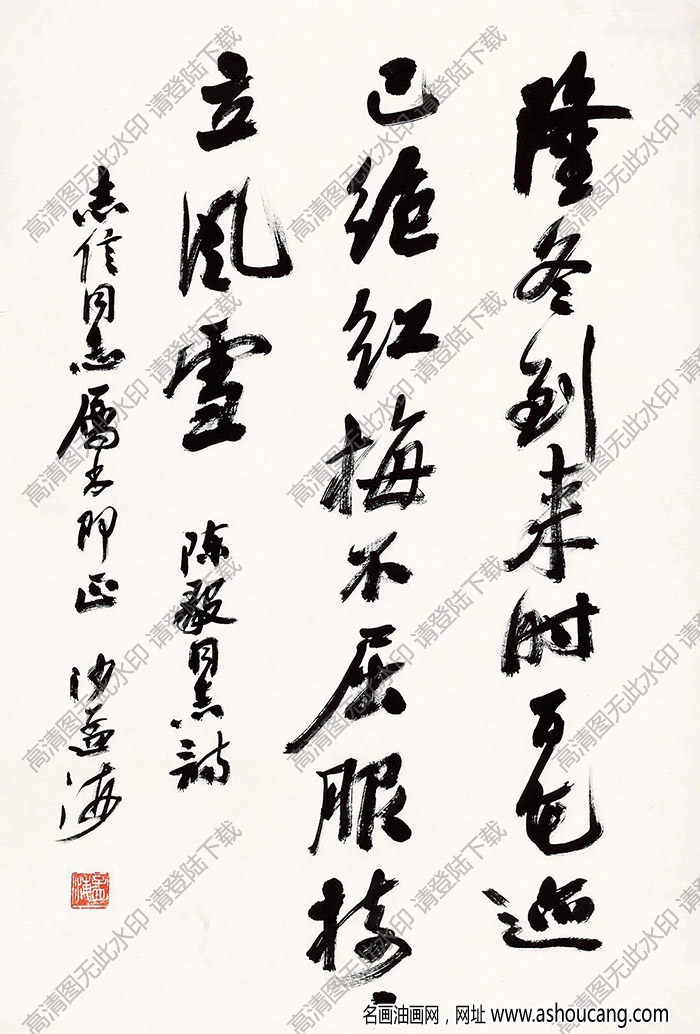 隆冬到来时百花迹
已绝红梅不屈服树〻
立风雪 陈毅同志诗
志信同志属书即正 沙孟海
孟海
高清图无此水印 请登陆下载
名画油画网，网址 www.ashoucang.com